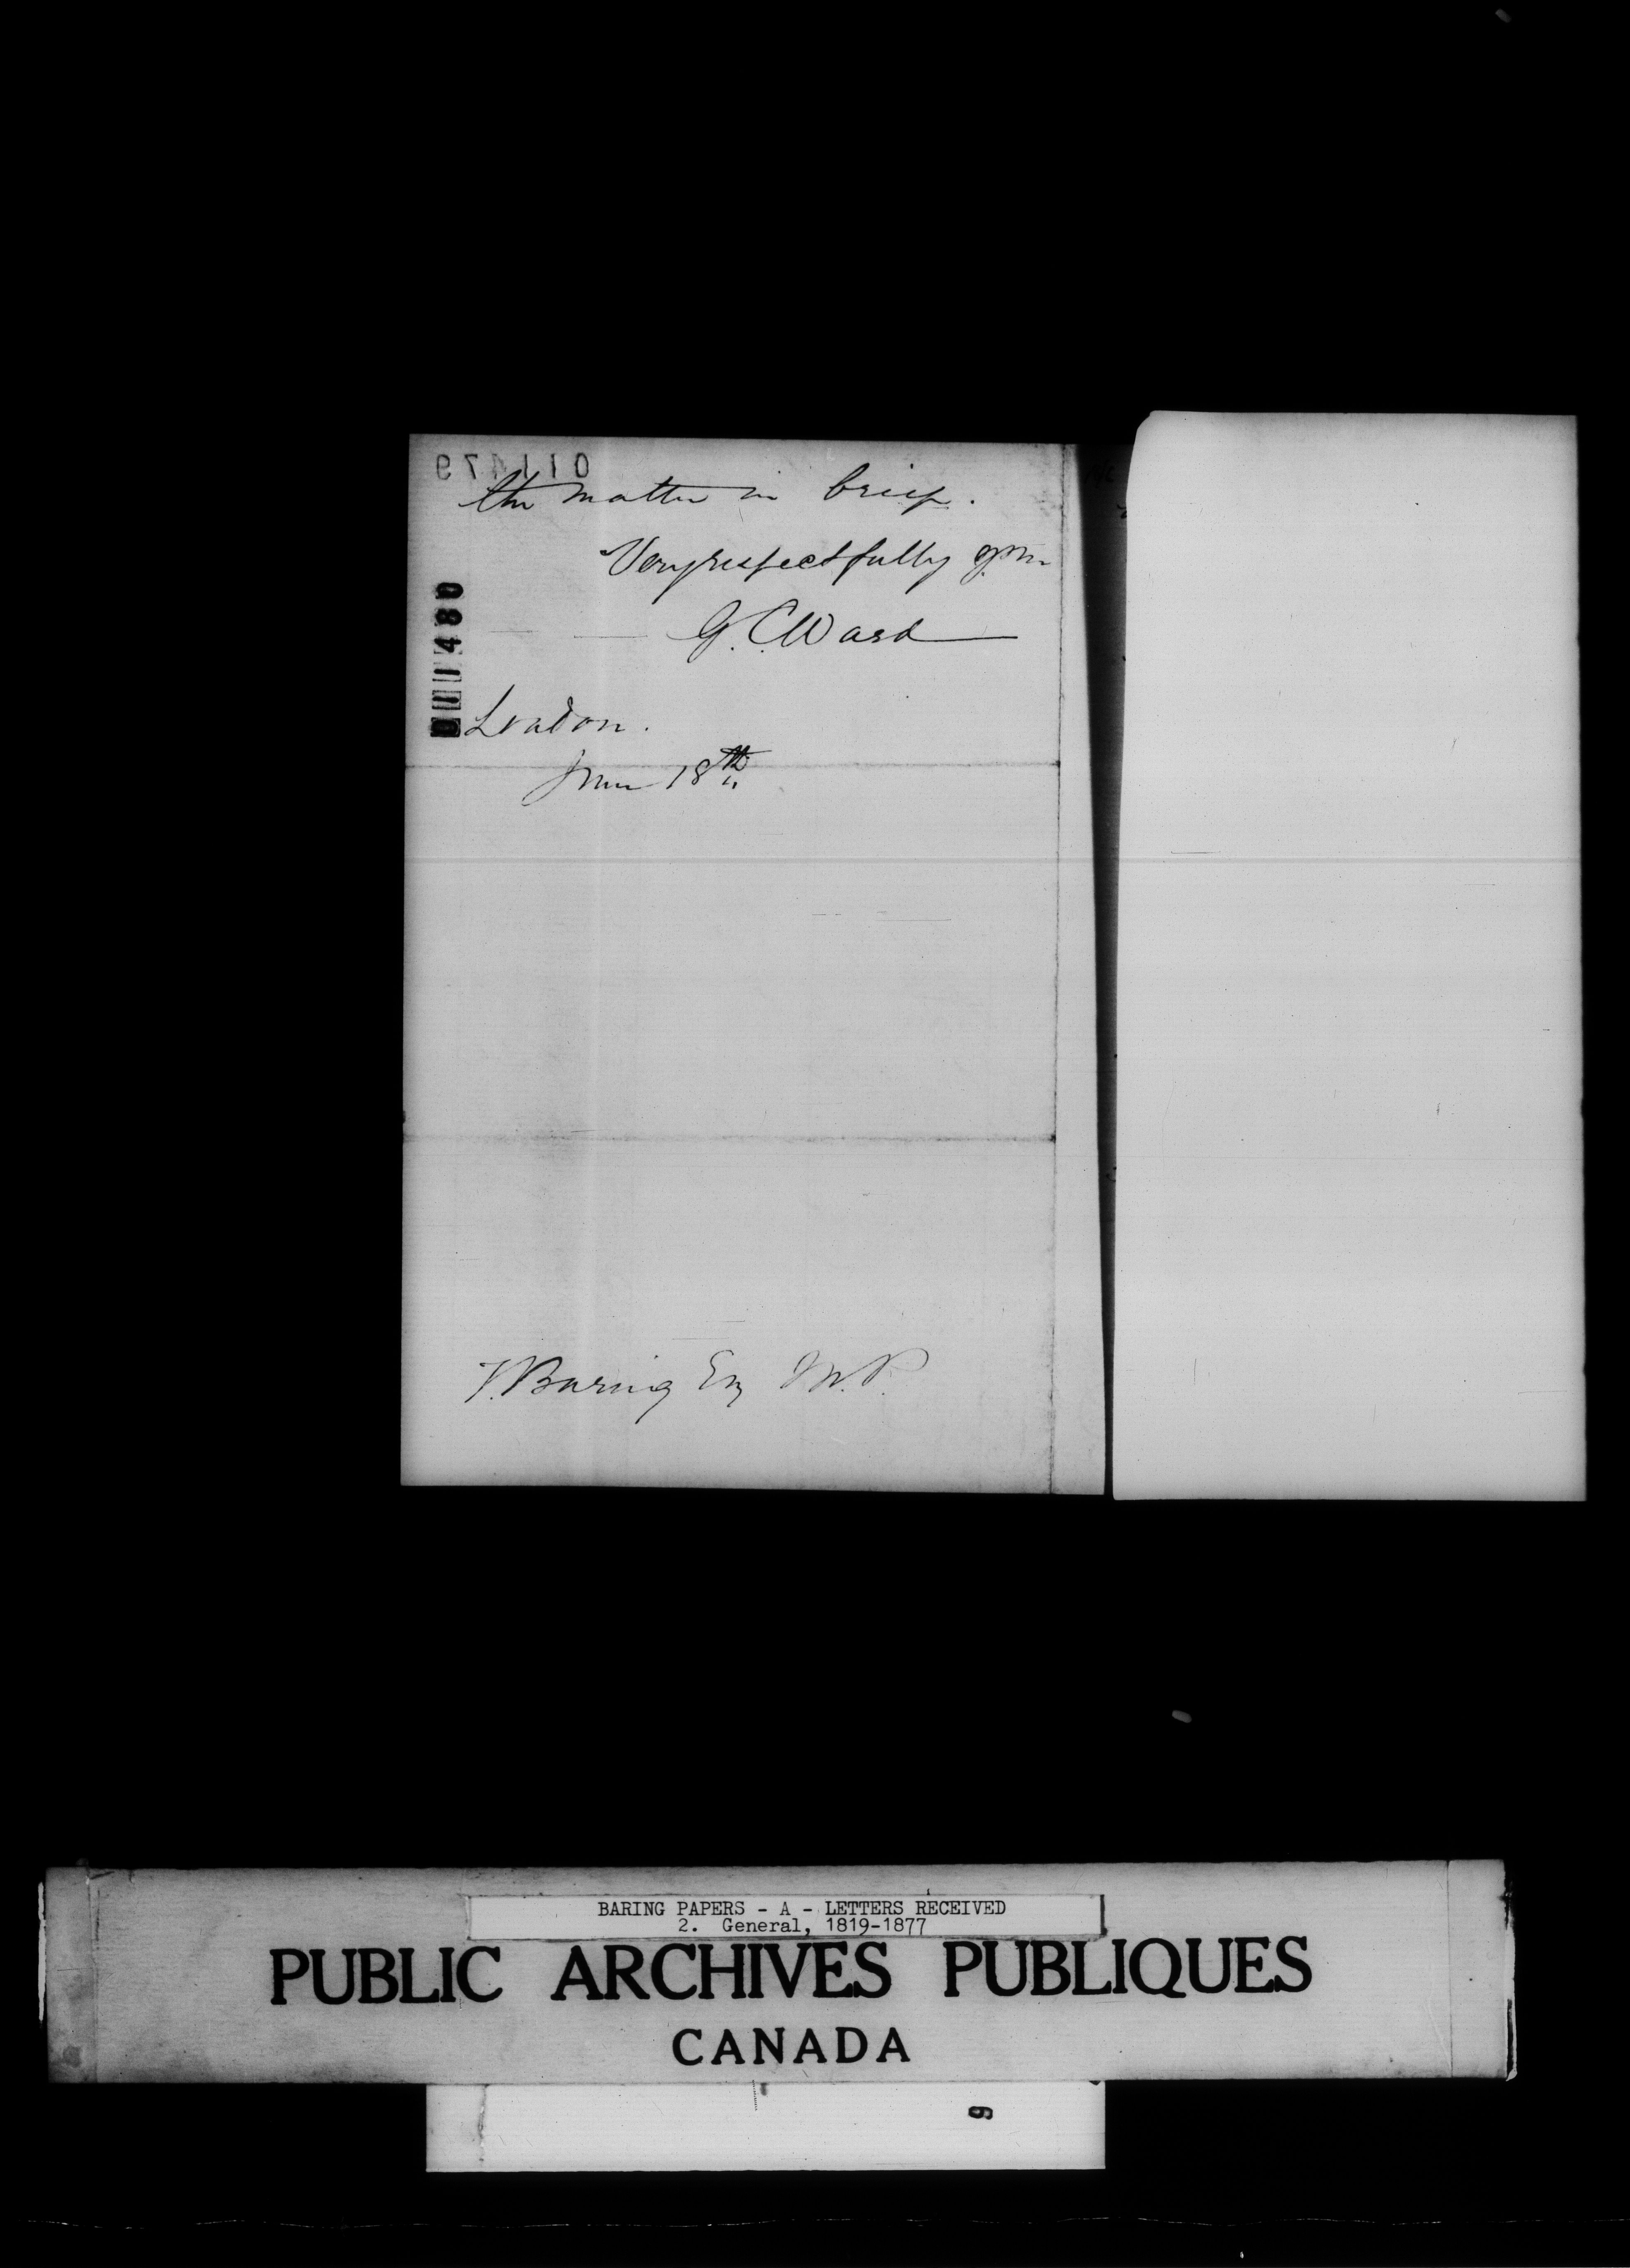 011479
the matter in brief.
Very respectfully yrs
G. C. Ward
011480
London.
June 18th
T. Baring Esq M.P.
BARING PAPERS - A - LETTERS RECEIVED
2. General, 1819-1877
PUBLIC ARCHIVES PUBLIQUES
CANADA